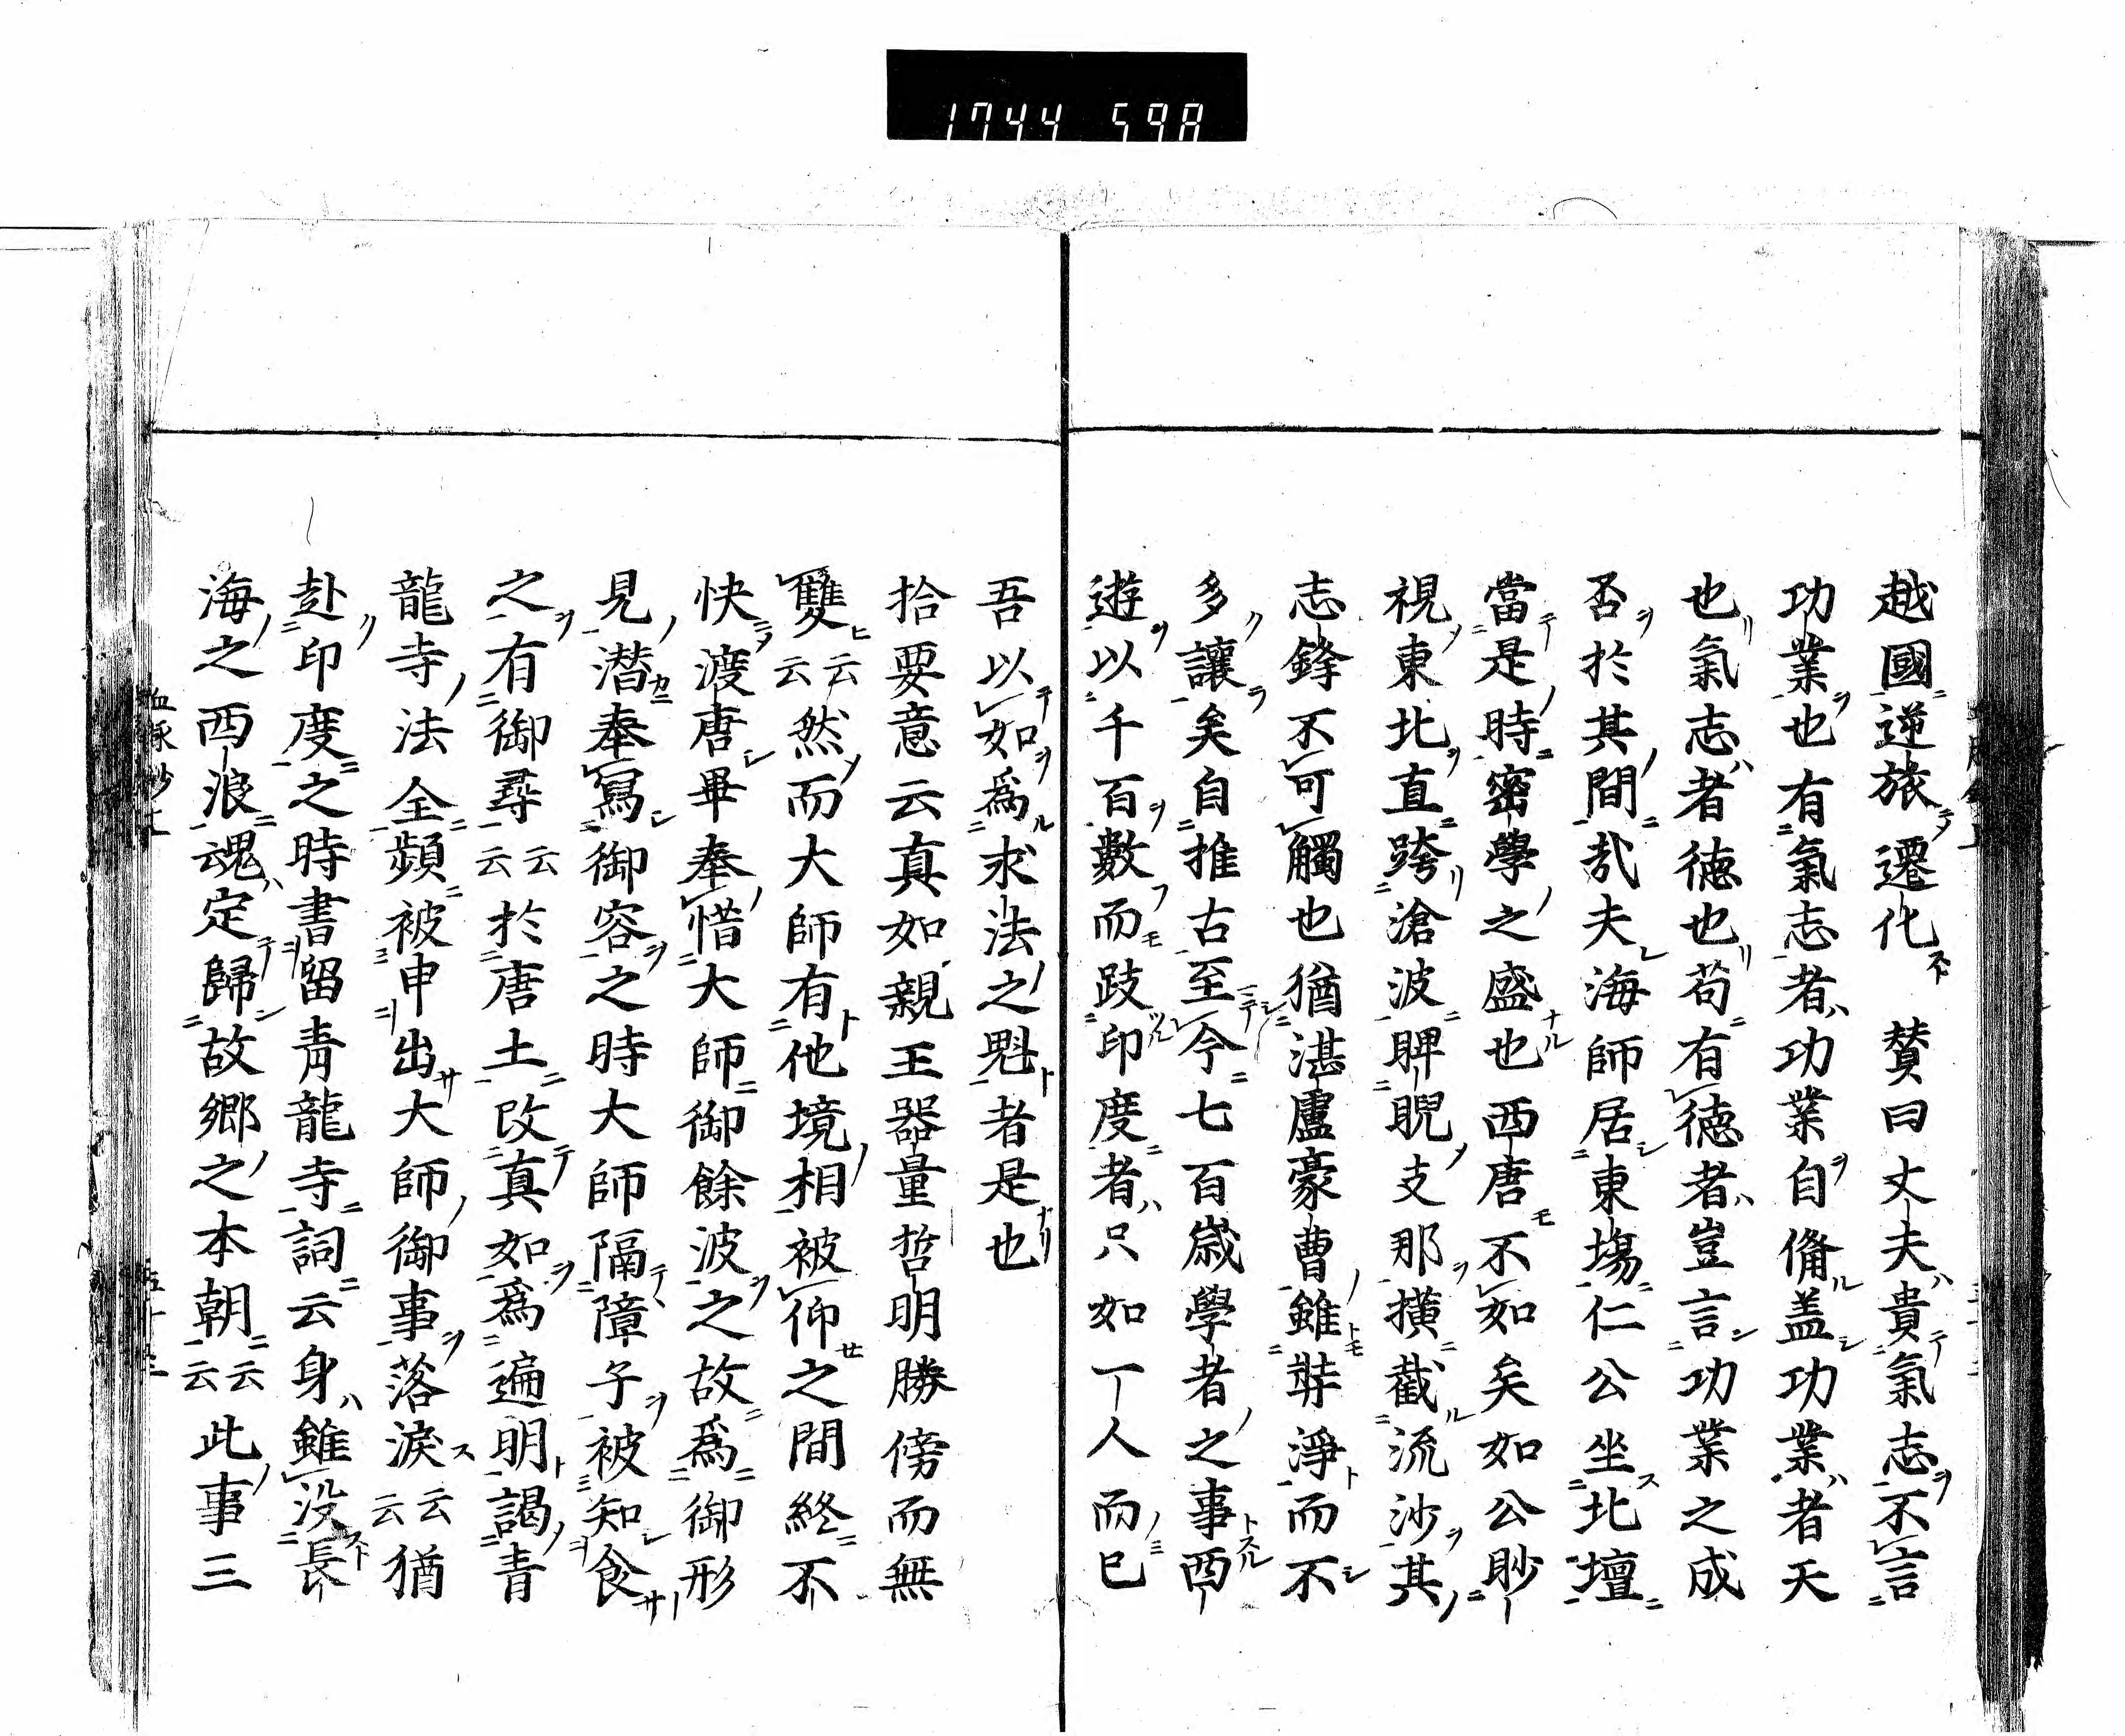 1744 598
越國逆旅遷化 賛曰丈夫貴氣志不言
功業也有氣志者功業自備盖功業者天
也氣志者德也苟有德者豈言功業之成
否於其間哉夫海師居東塲仁公坐北壇
當是時密學之盛也西唐不如矣如公眇
視東北直跨滄波睥睨支那横截流沙其
志鋒不可觸也猶湛盧豪曹雖弉淨而不
多讓矣自推古至今七百歳學者之事西
遊以千百數而跂印度者只如丁人而已
吾以如為求法之魁者是也
拾要意云真如親王器量哲明勝傍而無
雙云云然而大師有他境相被仰之間終不
快渡唐畢奉惜大師御餘波之故為御形
見潜奉寫御容之時大師隔障子被知食
之有御尋云云於唐土改真如為遍明謁青
龍寺法全頻被申出大師御事落淚云云猶
赴印度之時書留青龍寺詞云身雖没長
海之西浪魂定歸故郷之本朝云云此事三
血脉抄上